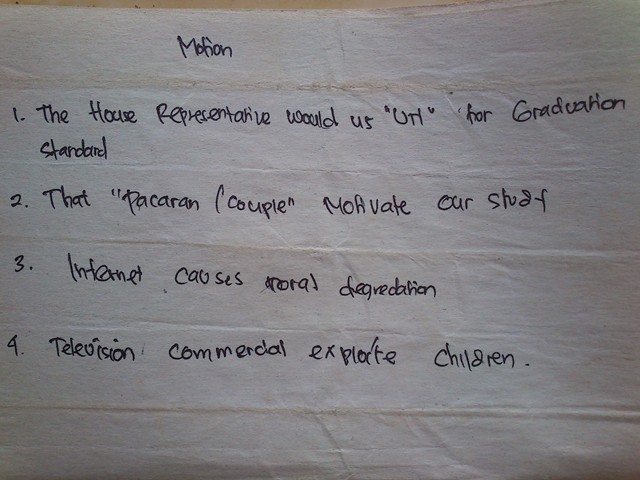 Motion
1. The House Representative would us "UTI" for Graduation
Standard
2. That "Pacaran / couple" Motivate our study
3. Internet causes moral degredation
4. Television commercial exploite children.